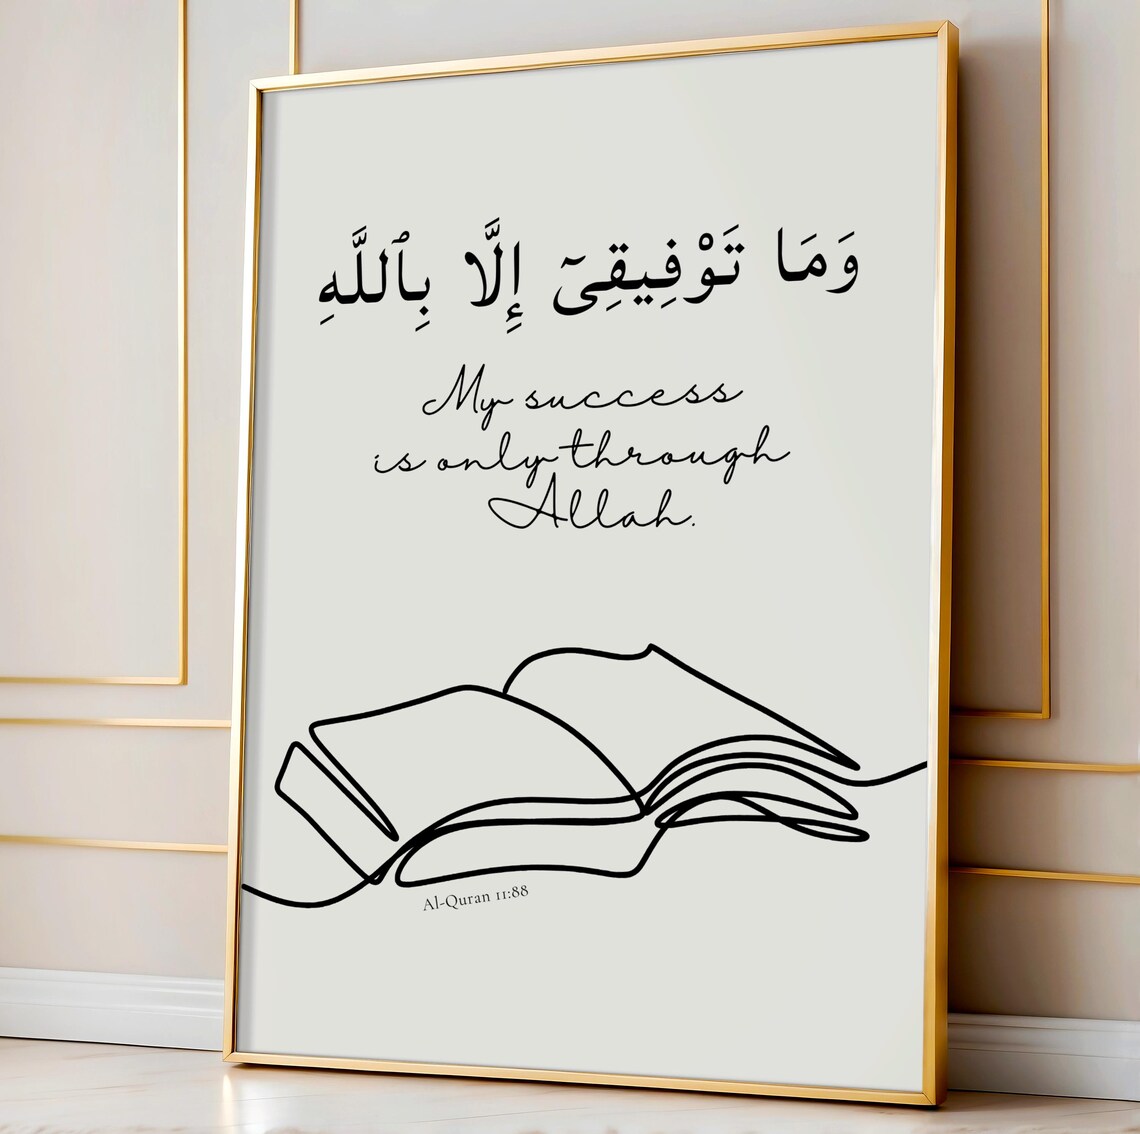 وَمَا تَوْفِيقِىٓ إِلَّا بِٱللَّهِ
My success
is only through
Allah.
Al-Quran 11:88